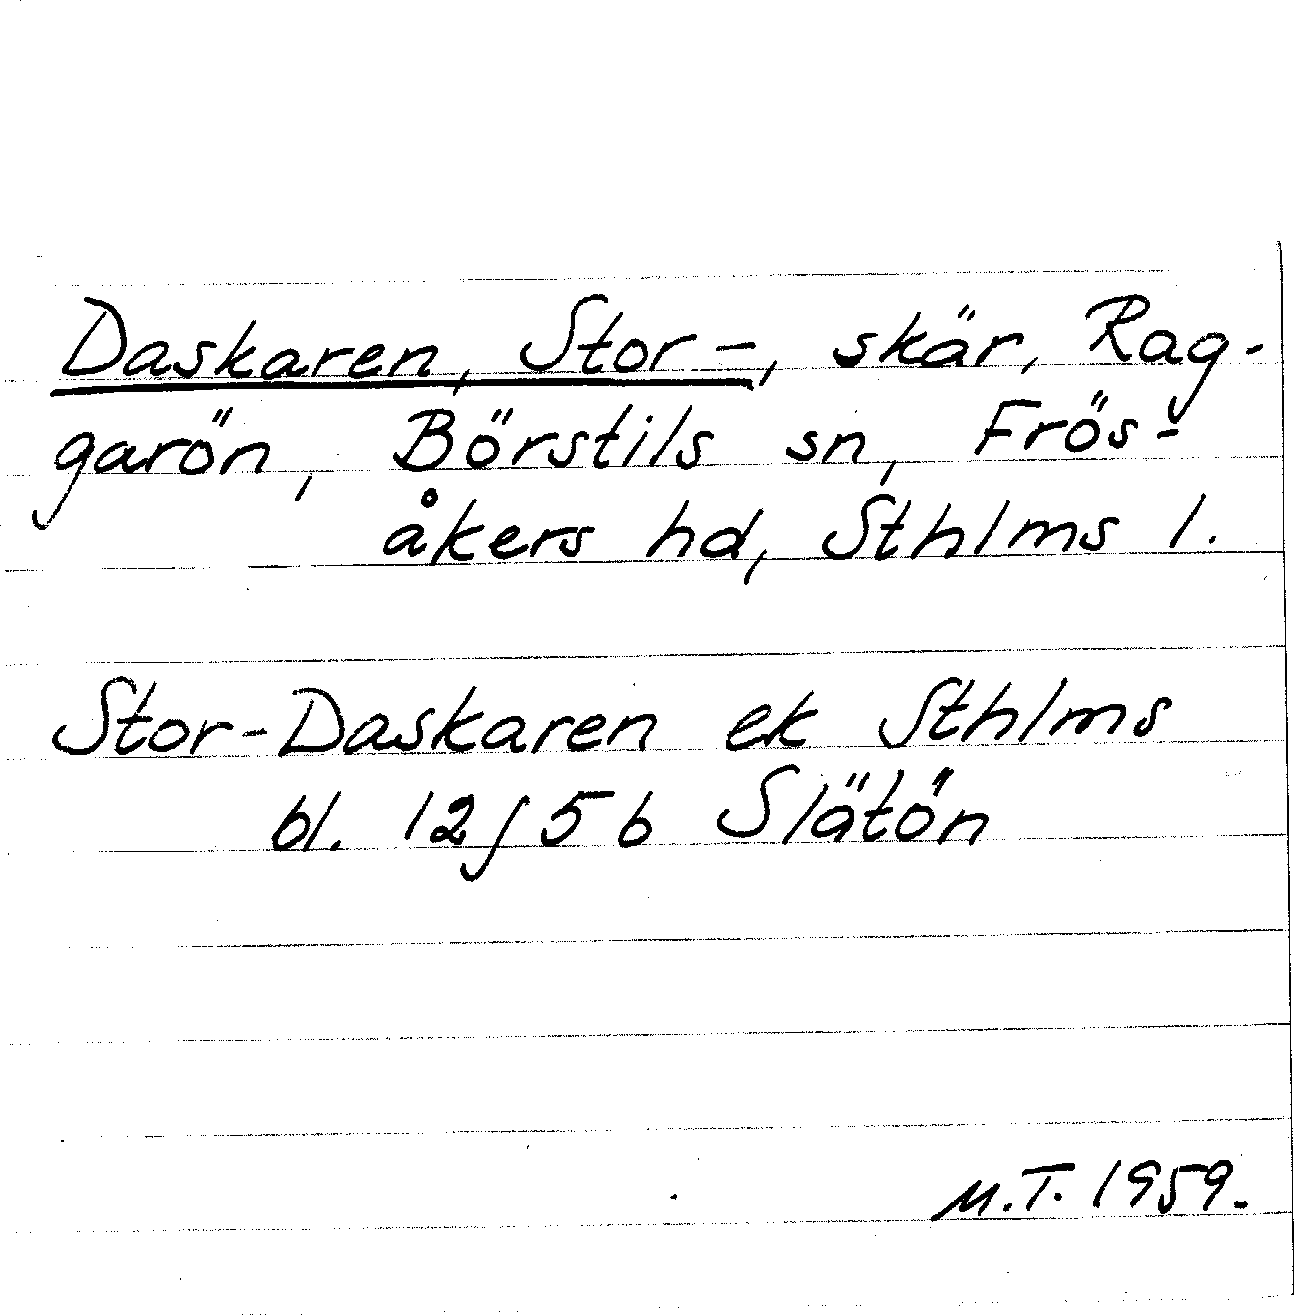 Daskaren, Stor-, skär, Rag-
garön, Börstils sn, Frös-
åkers hd, Sthlms l.
Stor-Daskaren ek Sthlms
bl. 12j5b Slätön
M.T. 1959.